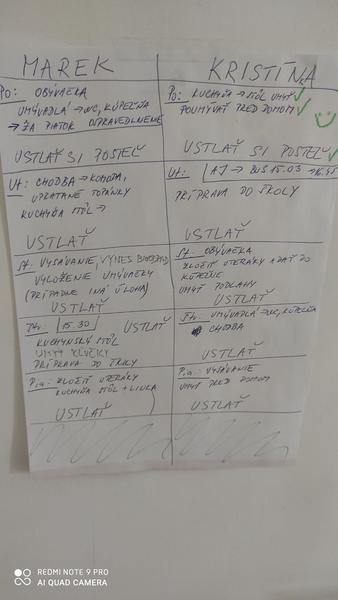 MAREK
PO: OBÝVAČKA
UMÝVADLÁ → WC, KÚPEĽŇA
→ ZA PIATOK OSPRAVEDLNENÉ
USTLAŤ SI POSTEĽ
UT: CHODBA →
UPRATANÉ TOPÁNKY
KUCHYŇA STÔL →
USTLAŤ
ST. VYSÁVANIE, VYNES
VYLOŽENIE UMÝVAČKY
(PRÍPADNE INÁ ÚLOHA)
USTLAŤ
15.30 USTLAŤ
KUCHYNSKÝ STÔL
UMYŤ KĽUČKY
PRÍPRAVA DO ŠKOLY
PIA: ZLOŽIŤ UTERÁKY
KUCHYŇA STÔL + LINKA
USTLAŤ
KRISTÍNA
PO: KUCHYŇA → STÔL UMYŤ
POUMÝVAŤ PRED DOMOM
USTLAŤ SI POSTEĽ
UT: AJ → 15.03 → 16.45
PRÍPRAVA DO ŠKOLY
USTLAŤ
ST. OBÝVAČKA
ZLOŽIŤ UTERÁKY A DAŤ DO
KÚPEĽNE
UMYŤ PODLAHY
USTLAŤ
UMÝVADLÁ → WC, KÚPEĽŇA
CHODBA
USTLAŤ
PIA: VYSÁVANIE
UMYŤ PRED DOMOM
USTLAŤ
REDMI NOTE 9 PRO
AI QUAD CAMERA